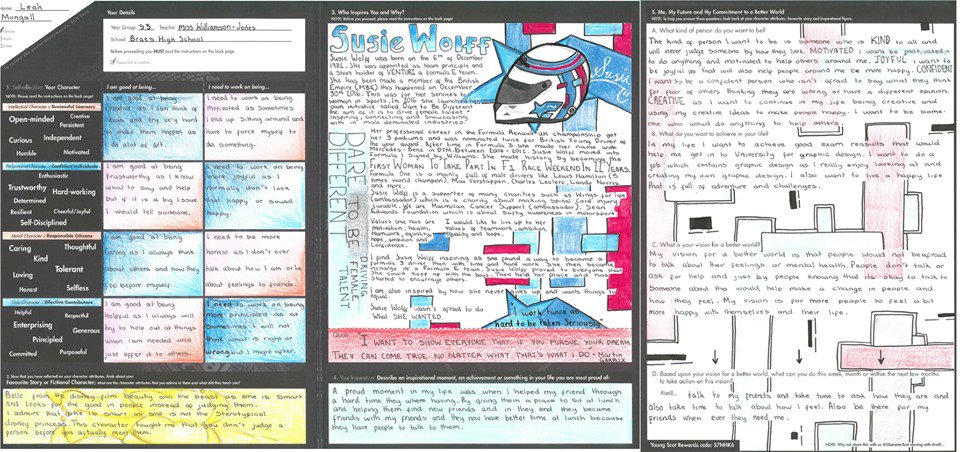 Name: Leah
Mungall
Your Details
Year Group: S3 Teacher: Miss Williamson-Jones
School: Braes High School
Before proceeding you MUST read the instructions on the back page
1. Self-reflection: Your Character
NOTE: Please read the instructions on the back page!
I am good at being...
I need to work on being...
Intellectual Character - Successful Learners
Open-minded
Creative
Persistent
Independent
Curious
Humble
Motivated
I am good at being
I need to work on being
motivated as sometimes
I end up sitting around and
have to force myself to
do something.
Confident Individuals
Enthusiastic
Trustworthy
Hard-working
Determined
Resilient
Cheerful/Joyful
Self-Disciplined
I am good at being
trustworthy as I know
what to say and help
but if it is a big issue
I would tell someone.
I need to work on being
more joyful as I
normally don't look
that happy or sound
happy.
Moral Character - Responsible Citizens
Caring
Thoughtful
Kind
Tolerant
Loving
Honest
Selfless
I am good at being
caring as I always think
about others and how they
feel before myself.
I need to be more
honest as I don't ever
talk about how I am or
about feelings to friends.
Civic Character - Effective Contributors
Helpful
Respectful
Enterprising
Generous
Principled
Committed
Purposeful
I am good at being
helpful as I always will
try to help out at things
when I am needed and
just offer it to others.
I need to work on being
more principled as at
sometimes I will not
think what is right or
wrong but I might after.
2. Now that you have reflected on your character attributes, think about your
Favourite Story or Fictional Character; what are the character attributes that you admire in them and what did they teach you?
Belle from the disney film beauty and the beast as she is smart
and looks for the good in people instead of judging them.
I admire that she is smart as she is not the stereotypical
disney princess. This character taught me that you don't judge a
person before you actually meet them.
3. Who Inspires You and Why?
NOTE: Before you proceed, please read the instructions on the back page!
SUSIE WOLFF
Susie Wolff was born on the 6th of December
1982. She was appointed as team principle and
a short holder of VENTURI a formula E team.
She has been made a member of the British
Empire (MBE) this happened on December
30th 2016. This was for her services to
woman in Sports. In 2016 she launched her
own initiative called Dare To Be Different
Susie
DARE TO BE DIFFERENT
FEMALE TALENT
Her professional career in the Formula Renault UK championship got
her 3 podiums and was nominated twice for British Young Driver of
the year award. After time in Formula 3 she made her name with
Formula 1 signed by Williams. She made history by becoming the
FIRST WOMAN TO TAKE PART IN F1 RACE WEEKEND IN 22 YEARS.
Formula One is a mostly full of male drivers like Lewis Hamilton (7
times world champion), Max Verstappen, Charles Leclerc, Lando Norris
and more.
Susie Wolff is a supporter of many charities such as Wings for life
(ambassador) which is a charity about making Spinal Cord injury
curable. We are Macmillan Cancer Support (ambassador). Sean
Edwards Foundation which is about safety awareness in motorsport
I find Susie Wolff inspiring as she found a way to become a
Formula 1 driver with time and hard work. She then become
incharge of a Formula E team. Susie Wolff proved to everyone that
I'm also inspired by how she never gives up and wants things to be
equal.
Susie Wolff wasn't afraid to do
What SHE WANTED.
I work twice as
hard to be taken seriously
I WANT TO SHOW EVERYONE THAT IF YOU PURSUE YOUR DREAM
THEY CAN COME TRUE. NO MATTER WHAT. THAT'S WHAT I DO - Martin
GARRIX
4. Your Inspiration: Describe an inspirational moment, an achievement or something in your life you are most proud of:
A proud moment in my life was when I helped my friend through
a hard time they where having. By giving them a place to sit at lunch
and helping them find new friends and in they end they became
friends with my friends and they now have better time at lunch because
they have people to talk to them.
5. Me, My Future and My Commitment to a Better World
NOTE: To help you answer these questions; look back at your character attributes, favourite story and inspirational figure.
A. What kind of person do you want to be?
The kind of person I want to be is someone who is KIND to all and
will never judge someone by how they look. MOTIVATED I want be motivated
to do anything and motivated to help others around me. JOYFUL I want
to be joyful as that will also help people around me be more happy. CONFIDENT
I want to be a confident person who isn't afraid to say what they think
for fear of others thinking they are wrong or have a different opinion.
CREATIVE as I want to continue in my life being creative and
using my creative ideas to make people happy. I want to be some-
one who would do anything to help others.
B. What do you want to achieve in your life?
In my life I want to achieve good exam results that would
help me get in to University for graphic design. I want to do a
job which contains graphic design as I really enjoy looking and
creating my own graphic design. I also want to live a happy life
that is full of adventure and challenges.
C. What is your vision for a better world?
My vision for a better world is that people would not be afraid
to talk about their feelings or mental health. People don't talk or
ask for help and just by people knowing that its okay to talk to
Someone about this would help make a change in people and
how they feel. My vision is for more people to feel a bit
more happy with themselves and their life.
D. Based upon your vision for a better world, what can you do this week, month or within the next few months
to take action on this vision?
I will talk to my friends and take time to ask how they are and
also take time to talk about how I feel. Also be there for my
friends when ever they need me.
Young Scot Rewards code: S7NHK6